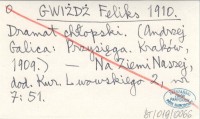 GWIŻDŻ Feliks 1910.
Dramat chłopski. (Andrzej
Galica: Przysięga. Kraków,
1909.) — Na Ziemi Naszej,
dod. Kur. Lwowskiego 2, nr
7: 51.
BT/0191/0066